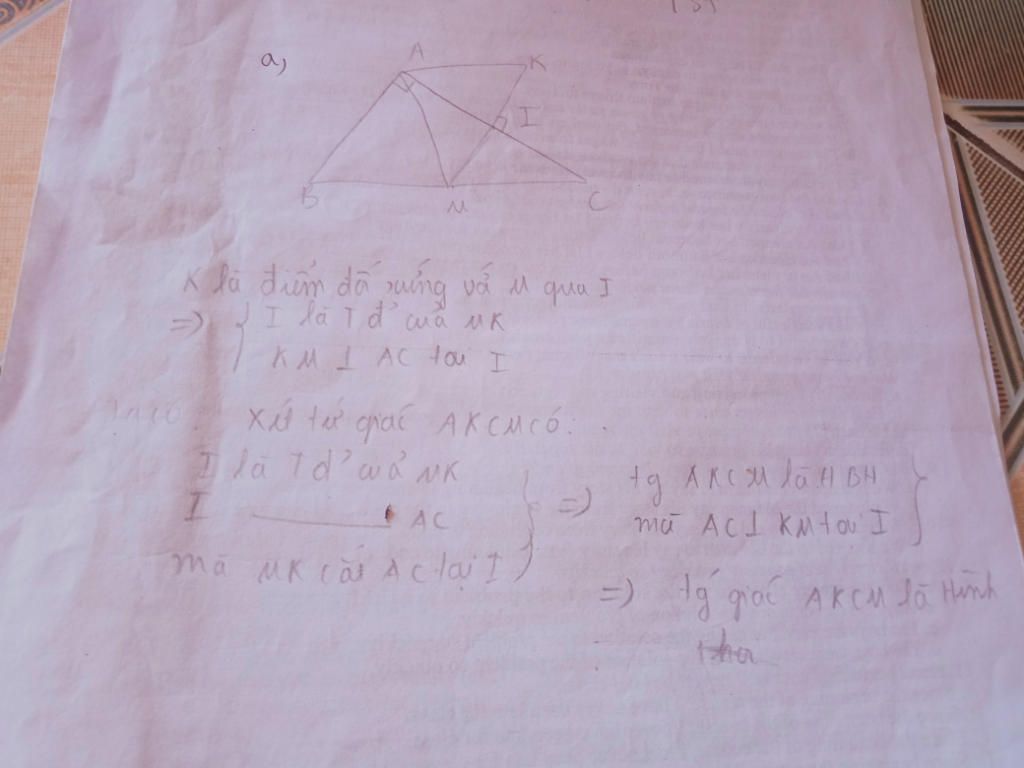 a,
A
K
I
B
M
C
K là điểm đối xứng với M qua I
=> { I là Tđ' của MK
KM ⊥ AC tại I
Xét tứ giác AKCM có:
I là Tđ' của MK
I ——— AC
mà MK cắt AC tại I
=> tg AKCM là HBH
mà AC ⊥ KM tại I
=> tứ giác AKCM là Hình
thoi